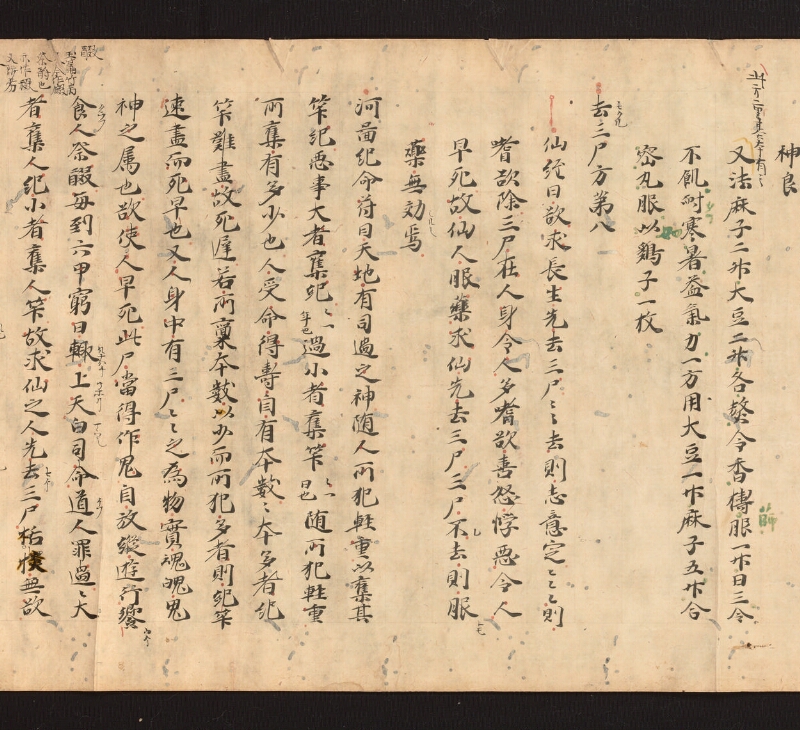 神良
又法麻子二升大豆二升各熬令香擣服一升日三令
不飢耐寒暑益氣力一方用大豆一升麻子五升合
蜜丸服以鷄子一枚
去三尸方第八
仙經曰欲求長生先去三尸〻〻去則志意定〻〻則
嗜欲除三尸在人身令人多嗜欲喜怒悖惡令人
早死故仙人服藥求仙先去三尸三尸不去則服
藥無効焉
河啚紀命符曰天地有司過之神随人所犯輕重以棄其
筭紀惡事大者棄紀〻一年也過小者棄筭〻一日也随所犯輕重
所棄有多少也人受命得壽自有本數〻本多者紀
筭難盡故死遲若所稟本數以少而所犯多者則紀筭
速盡而死早也又人身中有三尸〻〻之為物實魂魄鬼
神之属也欲使人早死此尸當得作鬼自放縱遊行饗
食人祭餟每到六甲窮日輙上天白司命道人罪過〻大
者棄人紀小者棄人筭故求仙之人先去三尸恬惔無欲